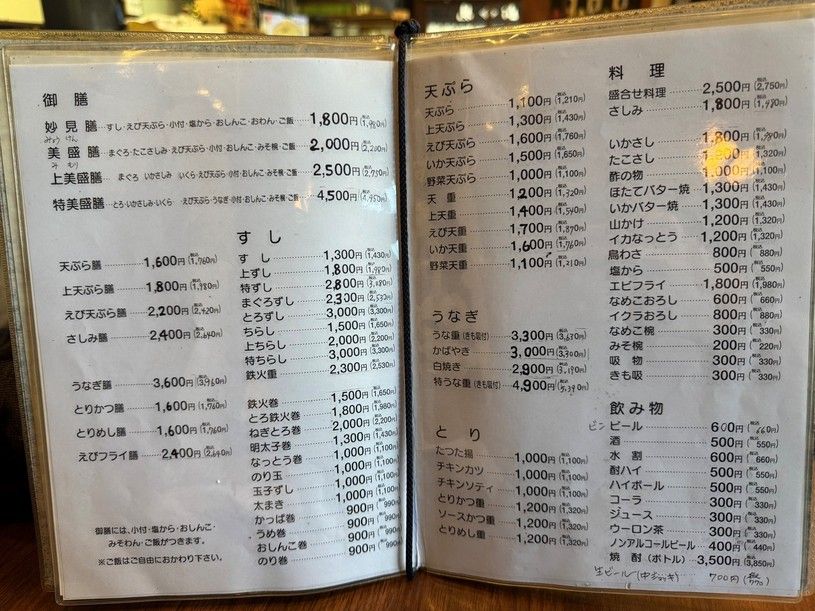 御膳
妙見膳 すし・えび天ぷら・小付・塩から・おしんこ・おわん・ご飯 1,800円(税込1,980円)
みょう けん
美盛膳 まぐろ・たこさしみ・えび天ぷら・小付・おしんこ・みそ椀・ご飯 2,000円(税込2,200円)
み もり
上美盛膳 まぐろ・いかさしみ・いくら・えび天ぷら・小付・おしんこ・みそ椀・ご飯 2,500円(税込2,750円)
特美盛膳 とろ・いかさしみ・いくら・えび天ぷら・うなぎ・小付・おしんこ・みそ椀・ご飯 4,500円(税込4,950円)
天ぷら膳 1,600円(税込1,760円)
上天ぷら膳 1,800円(税込1,980円)
えび天ぷら膳 2,200円(税込2,420円)
さしみ膳 2,400円(税込2,640円)
うなぎ膳 3,600円(税込3,960円)
とりかつ膳 1,600円(税込1,760円)
とりめし膳 1,600円(税込1,760円)
えびフライ膳 2,400円(税込2,640円)
御膳には、小付・塩から・おしんこ・
みそわん・ご飯がつきます。
※ご飯はご自由におかわり下さい。
すし
すし 1,300円(税込1,430円)
上ずし 1,800円(税込1,980円)
特ずし 2,800円(税込3,080円)
まぐろずし 2,300円(税込2,530円)
とろずし 3,000円(税込3,300円)
ちらし 1,500円(税込1,650円)
上ちらし 2,000円(税込2,200円)
特ちらし 3,000円(税込3,300円)
鉄火重 2,300円(税込2,530円)
鉄火巻 1,500円(税込1,650円)
とろ鉄火巻 1,800円(税込1,980円)
ねぎとろ巻 2,000円(税込2,200円)
明太子巻 1,300円(税込1,430円)
なっとう巻 1,000円(税込1,100円)
のり玉 1,000円(税込1,100円)
玉子ずし 1,000円(税込1,100円)
太まき 1,000円(税込1,100円)
かっぱ巻 900円(税込990円)
うめ巻 900円(税込990円)
おしんこ巻 900円(税込990円)
のり巻 900円(税込990円)
天ぷら
天ぷら 1,100円(税込1,210円)
上天ぷら 1,300円(税込1,430円)
えび天ぷら 1,600円(税込1,760円)
いか天ぷら 1,500円(税込1,650円)
野菜天ぷら 1,000円(税込1,100円)
天重 1,200円(税込1,320円)
上天重 1,400円(税込1,540円)
えび天重 1,700円(税込1,870円)
いか天重 1,600円(税込1,760円)
野菜天重 1,100円(税込1,210円)
うなぎ
うな重(きも吸付) 3,300円(税込3,630円)
かばやき 3,000円(税込3,300円)
白焼き 2,900円(税込3,190円)
特うな重(きも吸付) 4,900円(税込5,390円)
とり
たつた揚 1,000円(税込1,100円)
チキンカツ 1,000円(税込1,100円)
チキンソティ 1,000円(税込1,100円)
とりかつ重 1,200円(税込1,320円)
ソースかつ重 1,200円(税込1,320円)
とりめし重 1,200円(税込1,320円)
料理
盛合せ料理 2,500円(税込2,750円)
さしみ 1,800円(税込1,980円)
いかさし 1,800円(税込1,980円)
たこさし 1,200円(税込1,320円)
酢の物 1,000円(税込1,100円)
ほたてバター焼 1,300円(税込1,430円)
いかバター焼 1,300円(税込1,430円)
山かけ 1,200円(税込1,320円)
イカなっとう 1,200円(税込1,320円)
鳥わさ 800円(税込880円)
塩から 500円(税込550円)
エビフライ 1,800円(税込1,980円)
なめこおろし 600円(税込660円)
イクラおろし 800円(税込880円)
なめこ椀 300円(税込330円)
みそ椀 200円(税込220円)
吸物 300円(税込330円)
きも吸 300円(税込330円)
飲み物
ビンビール 600円(税込660円)
酒 500円(税込550円)
水割 600円(税込660円)
酎ハイ 500円(税込550円)
ハイボール 500円(税込550円)
コーラ 300円(税込330円)
ジュース 300円(税込330円)
ウーロン茶 300円(税込330円)
ノンアルコールビール 400円(税込440円)
焼酎(ボトル) 3,500円(税込3,850円)
生ビール(中ジョッキ) 700円(税込770)